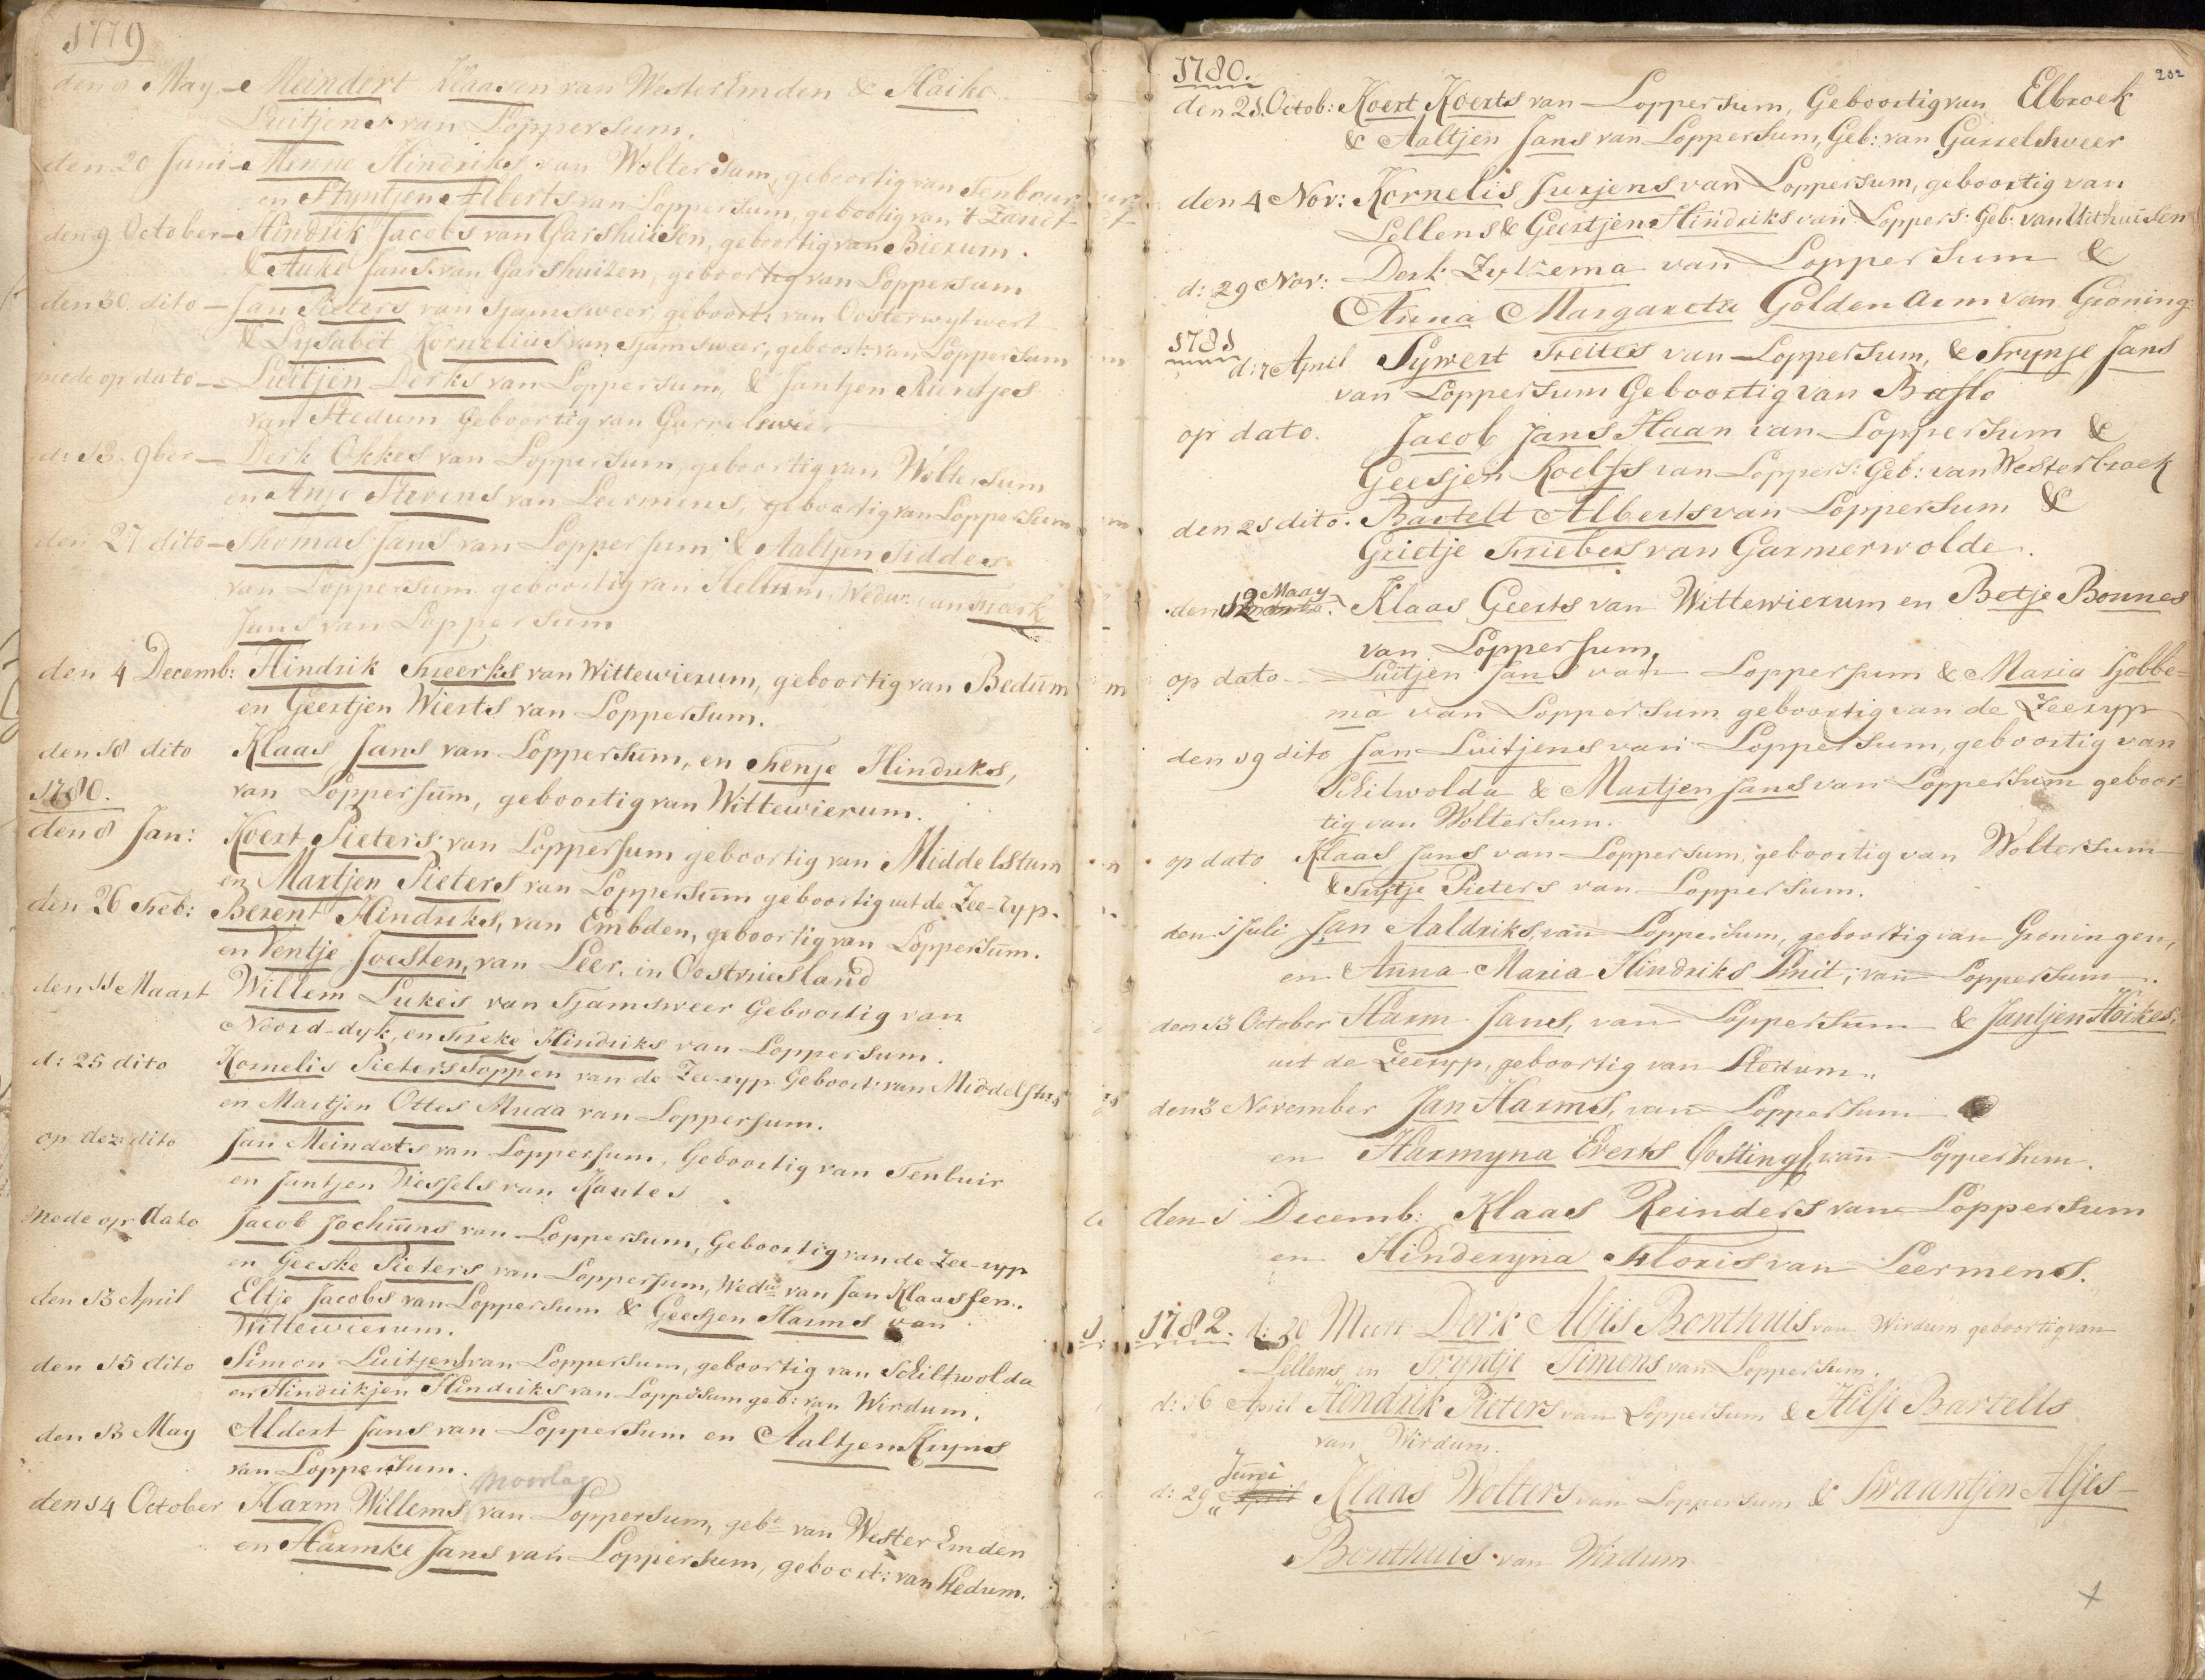 1779
den 9 May – Meindert Klaasen van WesterEmden & Haiko
Luitjens van Loppersum.
den 20 Juni – Menne Hindriks van Woltersum, geboortig van Tenboer
en Styntjen Alberts van Loppersum, geboortig van 't Zandt
den 9. October – Hindrik Jacobs van Garshuisen, geboortig van Bierum.
& Auke Jans van Garshuizen, geboortig van Loppersum
den 30. dito – Jan Pieters van Tjamsweer, geboort: van Oosterwytwert
& Lysabet Kornelius van Tjamsweer, geboort: van Loppersum
mede op dato – Luitjen Derks van Loppersum, & Jantjen Rientjes
van Stedum Geboortig van Garrelsweer
d: 13. 9ber – Derk Okkes van Loppersum, geboortig van Woltersum
en Anje Stevens van Leermens, geboortig van Loppersum
den 27 dito – Thomas Jans van Loppersum & Aaltjen Sidders
van Loppersum geboortig van Hellum, Wedw: van Freerk
Jans van Loppersum
den 4 Decemb: Hindrik Freerks van Wittewierum, geboortig van Bedum
en Geertjen Wierts van Loppersum.
den 18 dito Klaas Jans van Loppersum, en Fenje Hindriks,
van Loppersum, geboortig van Wittewierum.
1780.
den 8 Jan: Koert Pieters van Loppersum geboortig van Middelstum
en Martjen Pieters van Loppersum geboortig uit de Zee-ryp.
den 26 Feb: Berent Hindriks, van Embden, geboortig van Loppersum.
en Ventje Joesten, van Leer, in Oostvriesland
den 11 Maart Willem Lukes van Tjamsweer Geboortig van
Noord-dyk, en Freke Hindriks van Loppersum.
d: 25 dito Kornelis Pieters Toppen van de Zee-ryp Geboort: van Middelstum
en Martjen Ottes Muda van Loppersum.
op dez: dito Jan Meinderts van Loppersum, Geboortig van Tenbuir
en Jantjen Wessels van Kantes
Mede op dato Jacob Jochums van Loppersum, Geboortig van de Zee-ryp
en Geeske Pieters van Loppersum, Wedw: van Jan Klaassen.
den 13 April Eltje Jacobs van Loppersum & Geesjen Harms van
Wittewierum.
den 15 dito Simon Luitjens van Loppersum, geboortig van Schiltwolda
en Hindrikjen Hindriks van Loppersum geb: van Wirdum.
den 13 May Aldert Jans van Loppersum en Aaltjen Kryns
van Loppersum.
Moorlag
den 14 October Harm Willems van Loppersum, geb: van Wester Emden
en Harmke Jans van Loppersum, geboort: van Stedum.
202
1780.
den 21. Octob: Koert Koerts van Loppersum, Geboortig van Elbroek
& Aaltjen Jans van Loppersum, Geb: van Garrelsweer
den 4 Nov: Kornelis Jurjens van Loppersum, geboortig van
Lellens & Geertjen Hindriks van Loppers: Geb: van Uithuisen
d: 29 Nov: Derk Zylzema van Loppersum &
Anna Margareta Golden Arm van Groning:
1781
d: 7 April Sywert Freites van Loppersum, & Trynje Jans
van Loppersum Geboortig van Baflo
op dato. Jacob Jans Haan van Loppersum &
Geesjen Roelfs van Loppers: Geb: van Westerbroek
den 21 dito. Bartelt Alberts van Loppersum &
Grietje Friebes van Garmerwolde.
Maay
den 12 Klaas Geerts van Wittewierum en Betje Bonnes
van Loppersum.
op dato – Luitjen Jans van Loppersum & Maria Hobbe=
ma van Loppersum geboortig van de Zeeryp
den 19 dito Jan Luitjens van Loppersum, geboortig van
Schilwolda & Martjen Jans van Loppersum geboor
tig van Woltersum.
op dato Klaas Jans van Loppersum, geboortig van Woltersum
& Trytje Pieters van Loppersum.
den 1 Juli Jan Aaldriks, van Loppersum, geboortig van Groningen,
en Anna Maria Hindriks Smit, van Loppersum.
den 13 October Harm Jans, van Loppersum & Jantjen Hoikes,
uit de Zeeryp, geboortig van Stedum.
den 3 November Jan Harms, van Loppersum
en Harmyna Everts Oostingh, van Loppersum.
den 1 Decemb: Klaas Reinders van Loppersum
en Hinderyna Floris van Leermens.
1782. d: 30 Meert Derk Aljes Bonthuis van Wirdum geboortig van
Lellens en Tryntje Timens van Loppersum.
d: 16 April Hindrik Pieters van Loppersum & Hilje Bartelts
van Wirdum.
Junii
d: 29 April Klaas Wolters van Loppersum & Swaantjen Aljes
Bonthuis van Wirdum